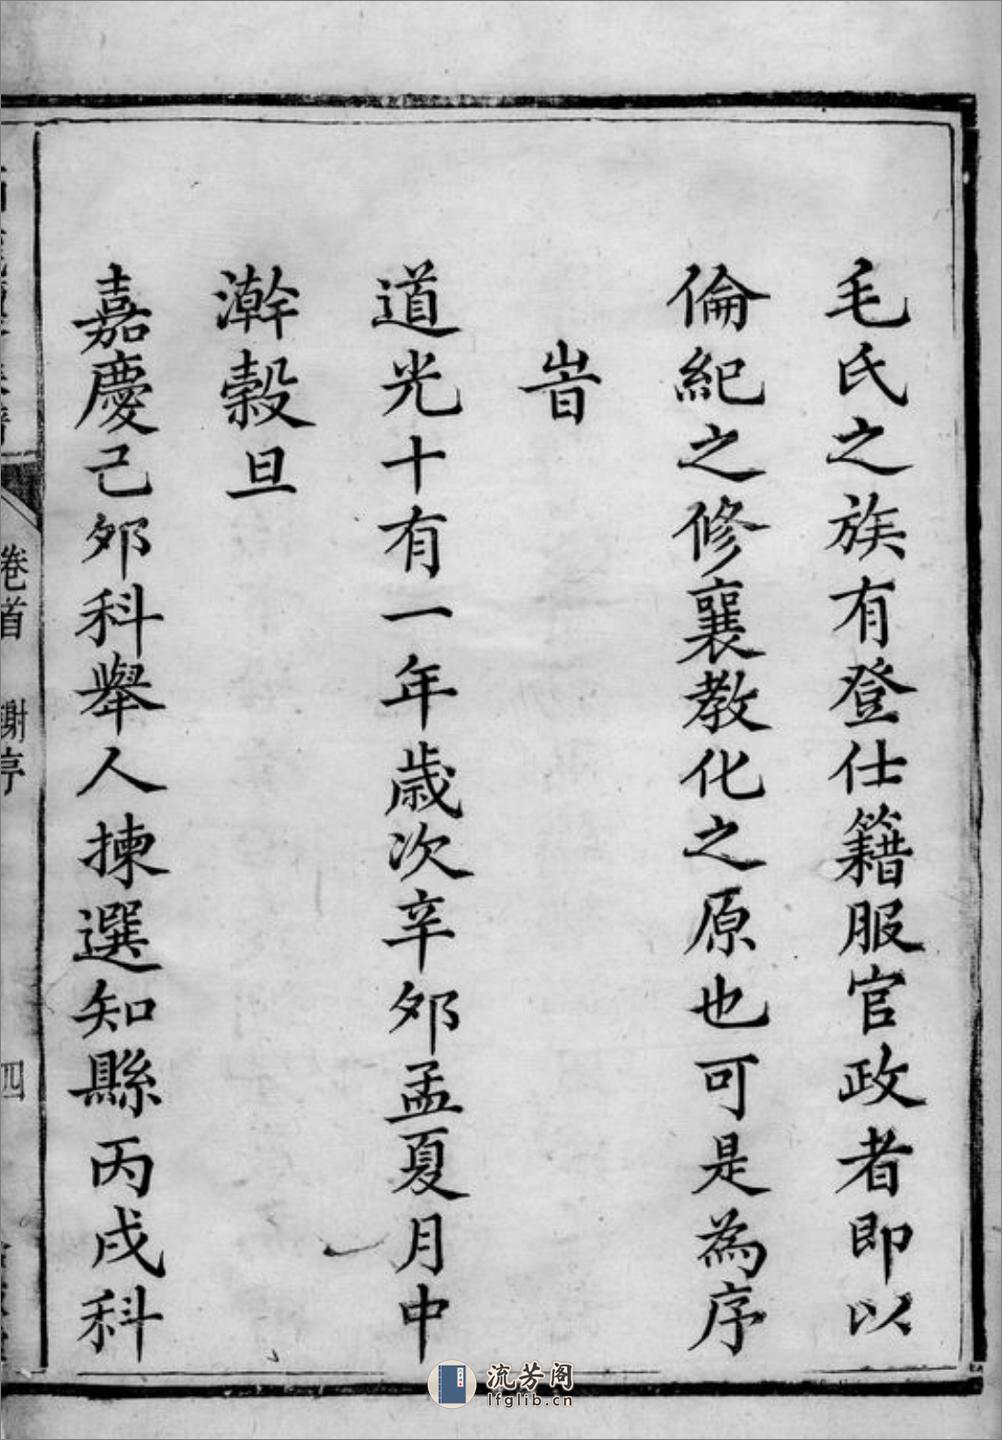 毛氏之族有登仕籍服官政者即以
倫紀之修襄教化之原也可是為序
旹
道光十有一年歲次辛夘孟夏月中
澣榖旦
嘉慶己夘科舉人揀選知縣丙戌科
卷首 謝序 四
流芳阁
lfglib.cn